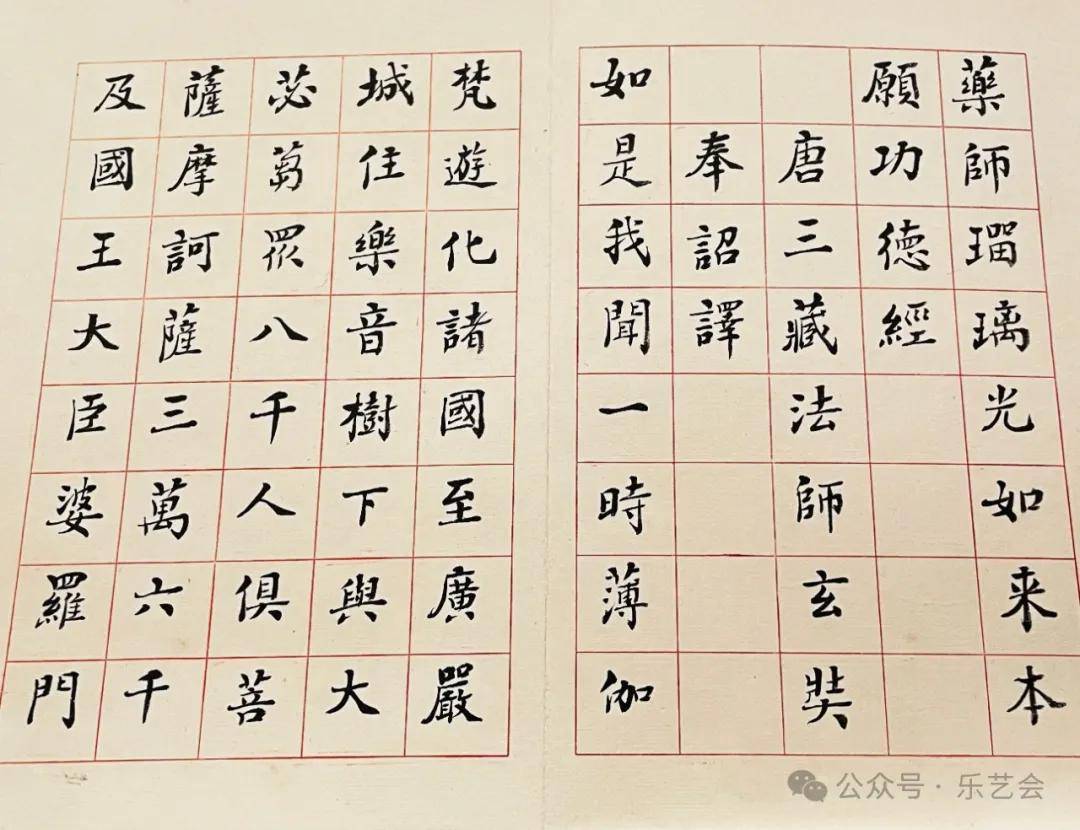 藥師瑠璃光如来本
願功德經
唐三藏法師玄奘
奉詔譯
如是我聞一時薄伽
梵遊化諸國至廣嚴
城住樂音樹下與大
苾芻眾八千人俱菩
薩摩訶薩三萬六千
及國王大臣婆羅門
公众号·乐艺会